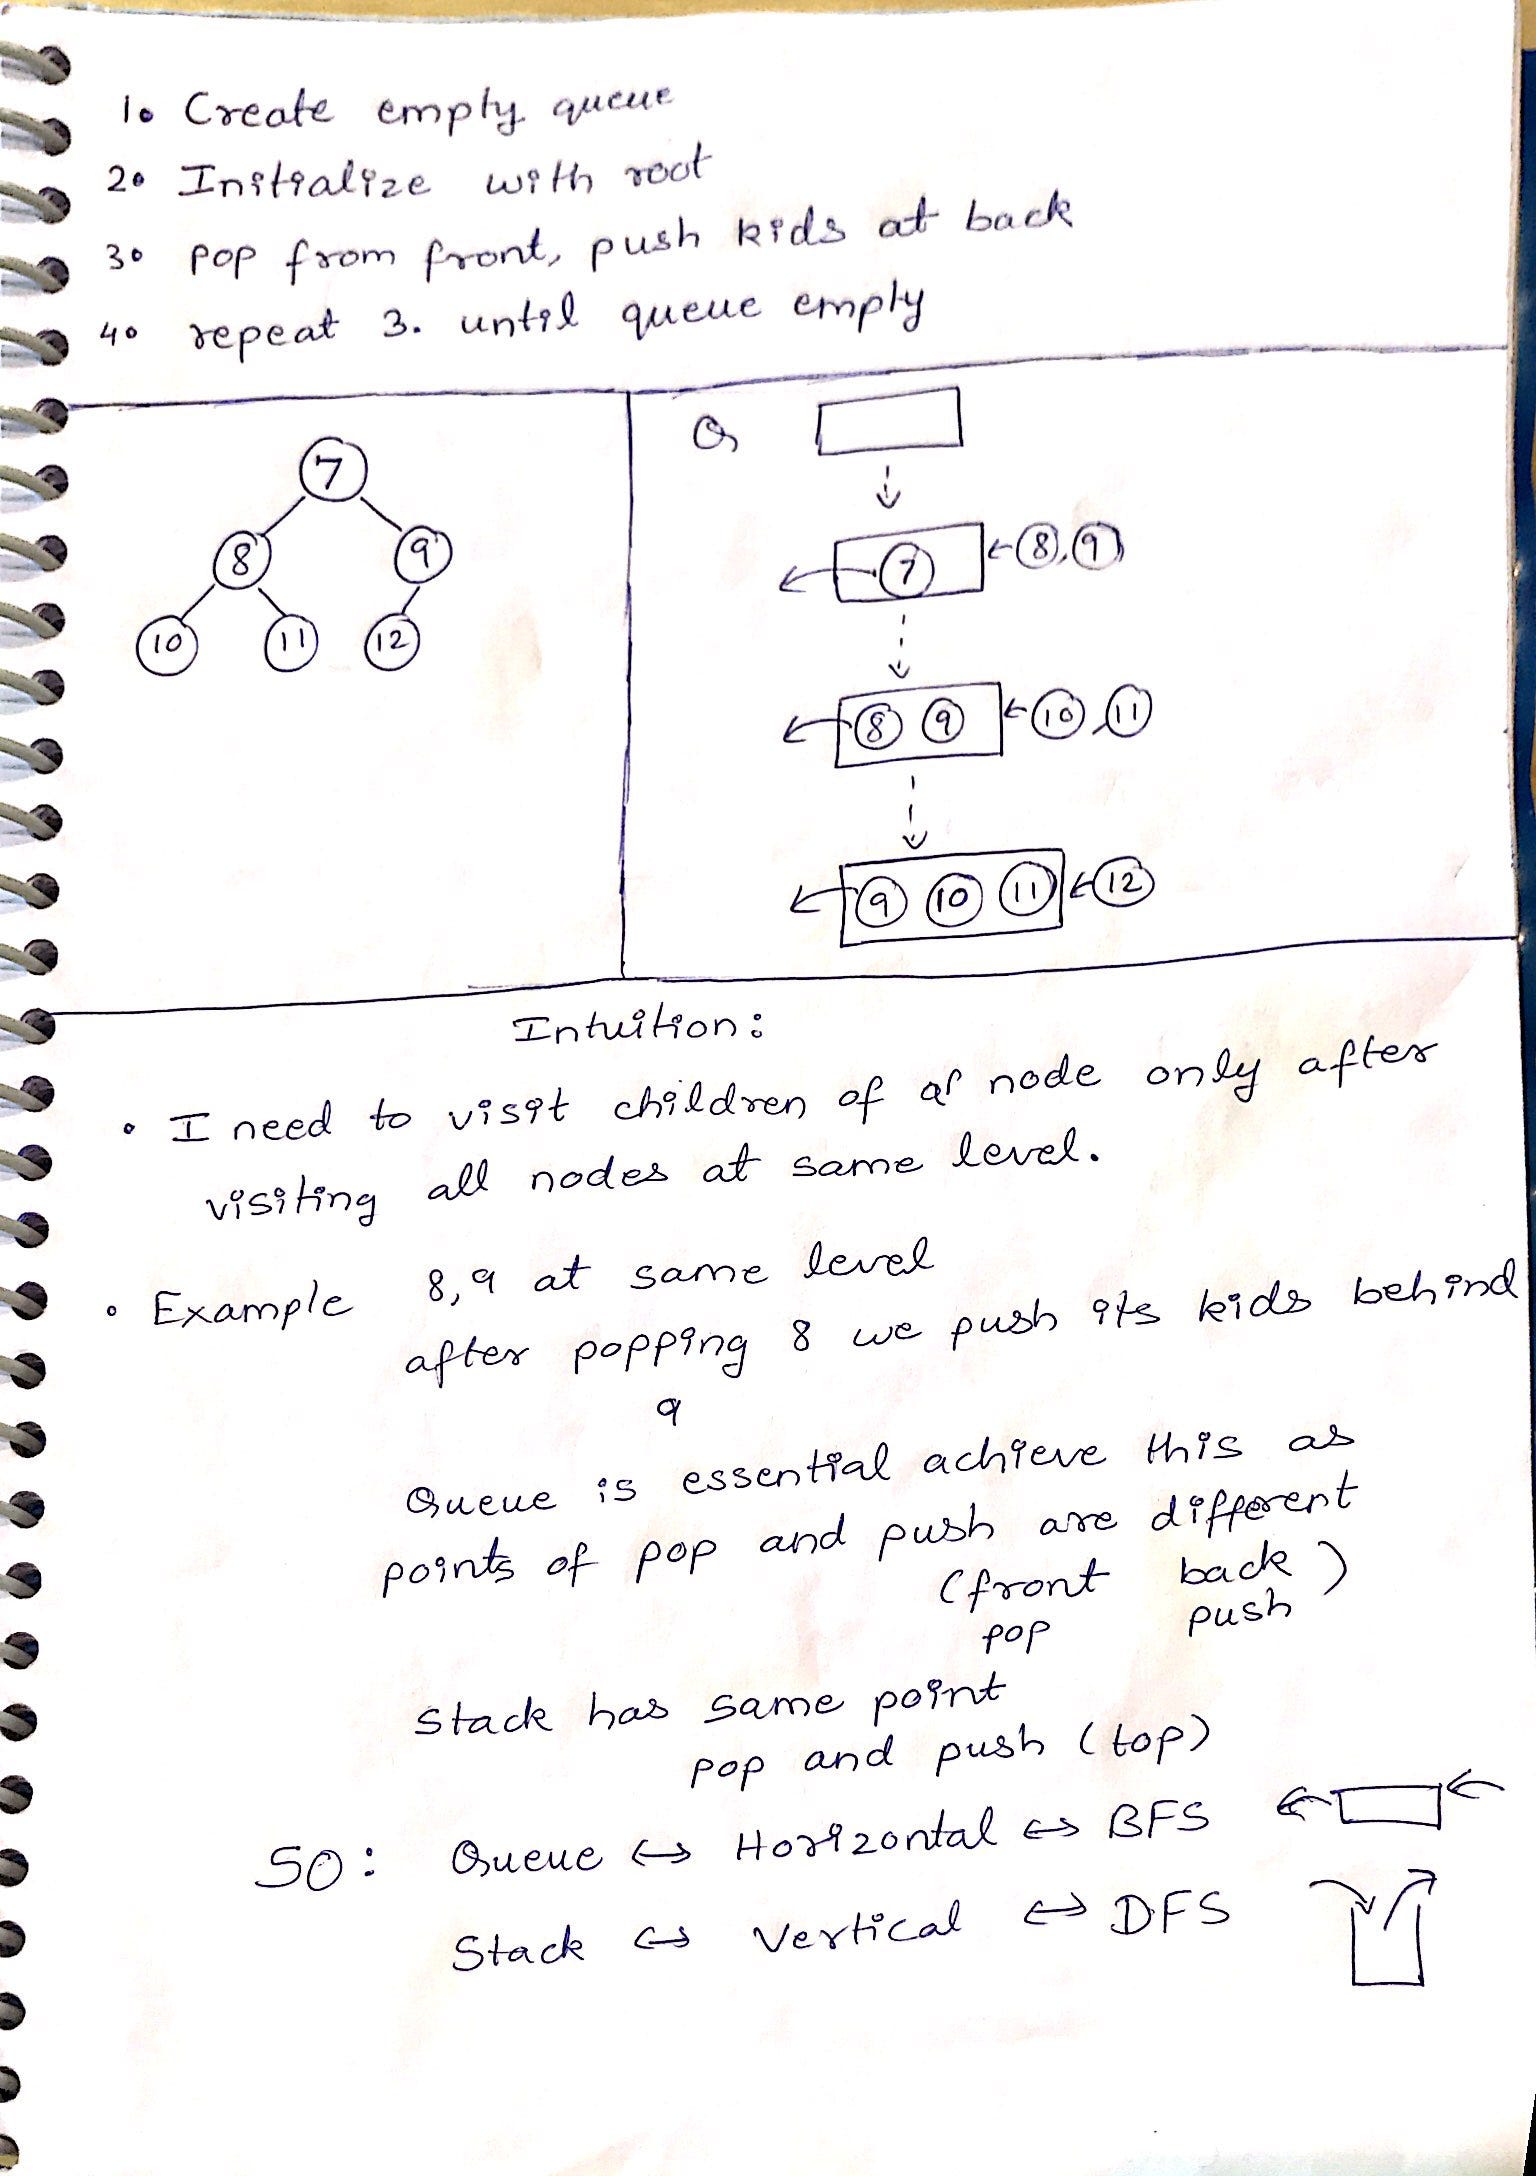 1. Create empty queue
2. Initialize with root
3. pop from front, push kids at back
4. repeat 3. until queue empty
7
8 9
10 11 12
Q
7 ← 8, 9
8 9 ← 10, 11
9 10 11 ← 12
Intuition:
• I need to visit children of a node only after
visiting all nodes at same level.
• Example 8,9 at same level
after popping 8 we push its kids behind
9
Queue is essential achieve this as
points of pop and push are different
(front back)
pop push
Stack has same point
pop and push (top)
SO: Queue ↔ Horizontal ↔ BFS
Stack ↔ Vertical ↔ DFS